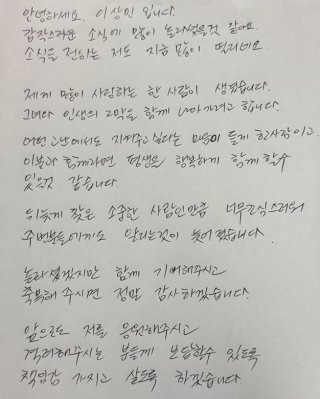 안녕하세요. 이상민 입니다.
갑작스러운 소식에 많이 놀라셨을것 같아요.
소식을 전하는 저도 지금 많이 떨리네요.
제게 많이 사랑하는 한 사람이 생겼습니다.
그녀와 인생의 2막을 함께 나아가려고 합니다.
어떤 고난에서도 지켜주고 싶다는 마음이 들게 한 사람이고..
이분과 함께라면 평생을 행복하게 함께 할수
있을것 같습니다.
뒤늦게 찾은 소중한 사람인만큼 너무 조심스러워
주변분들에게도 알리는것이 늦어 졌습니다.
놀라셨겠지만 함께 기뻐해주시고
축복해 주시면 정말 감사하겠습니다.
앞으로도 저를 응원해주시고
격려해주시는 분들께 보답할수 있도록
책임감 가지고 살도록 하겠습니다.